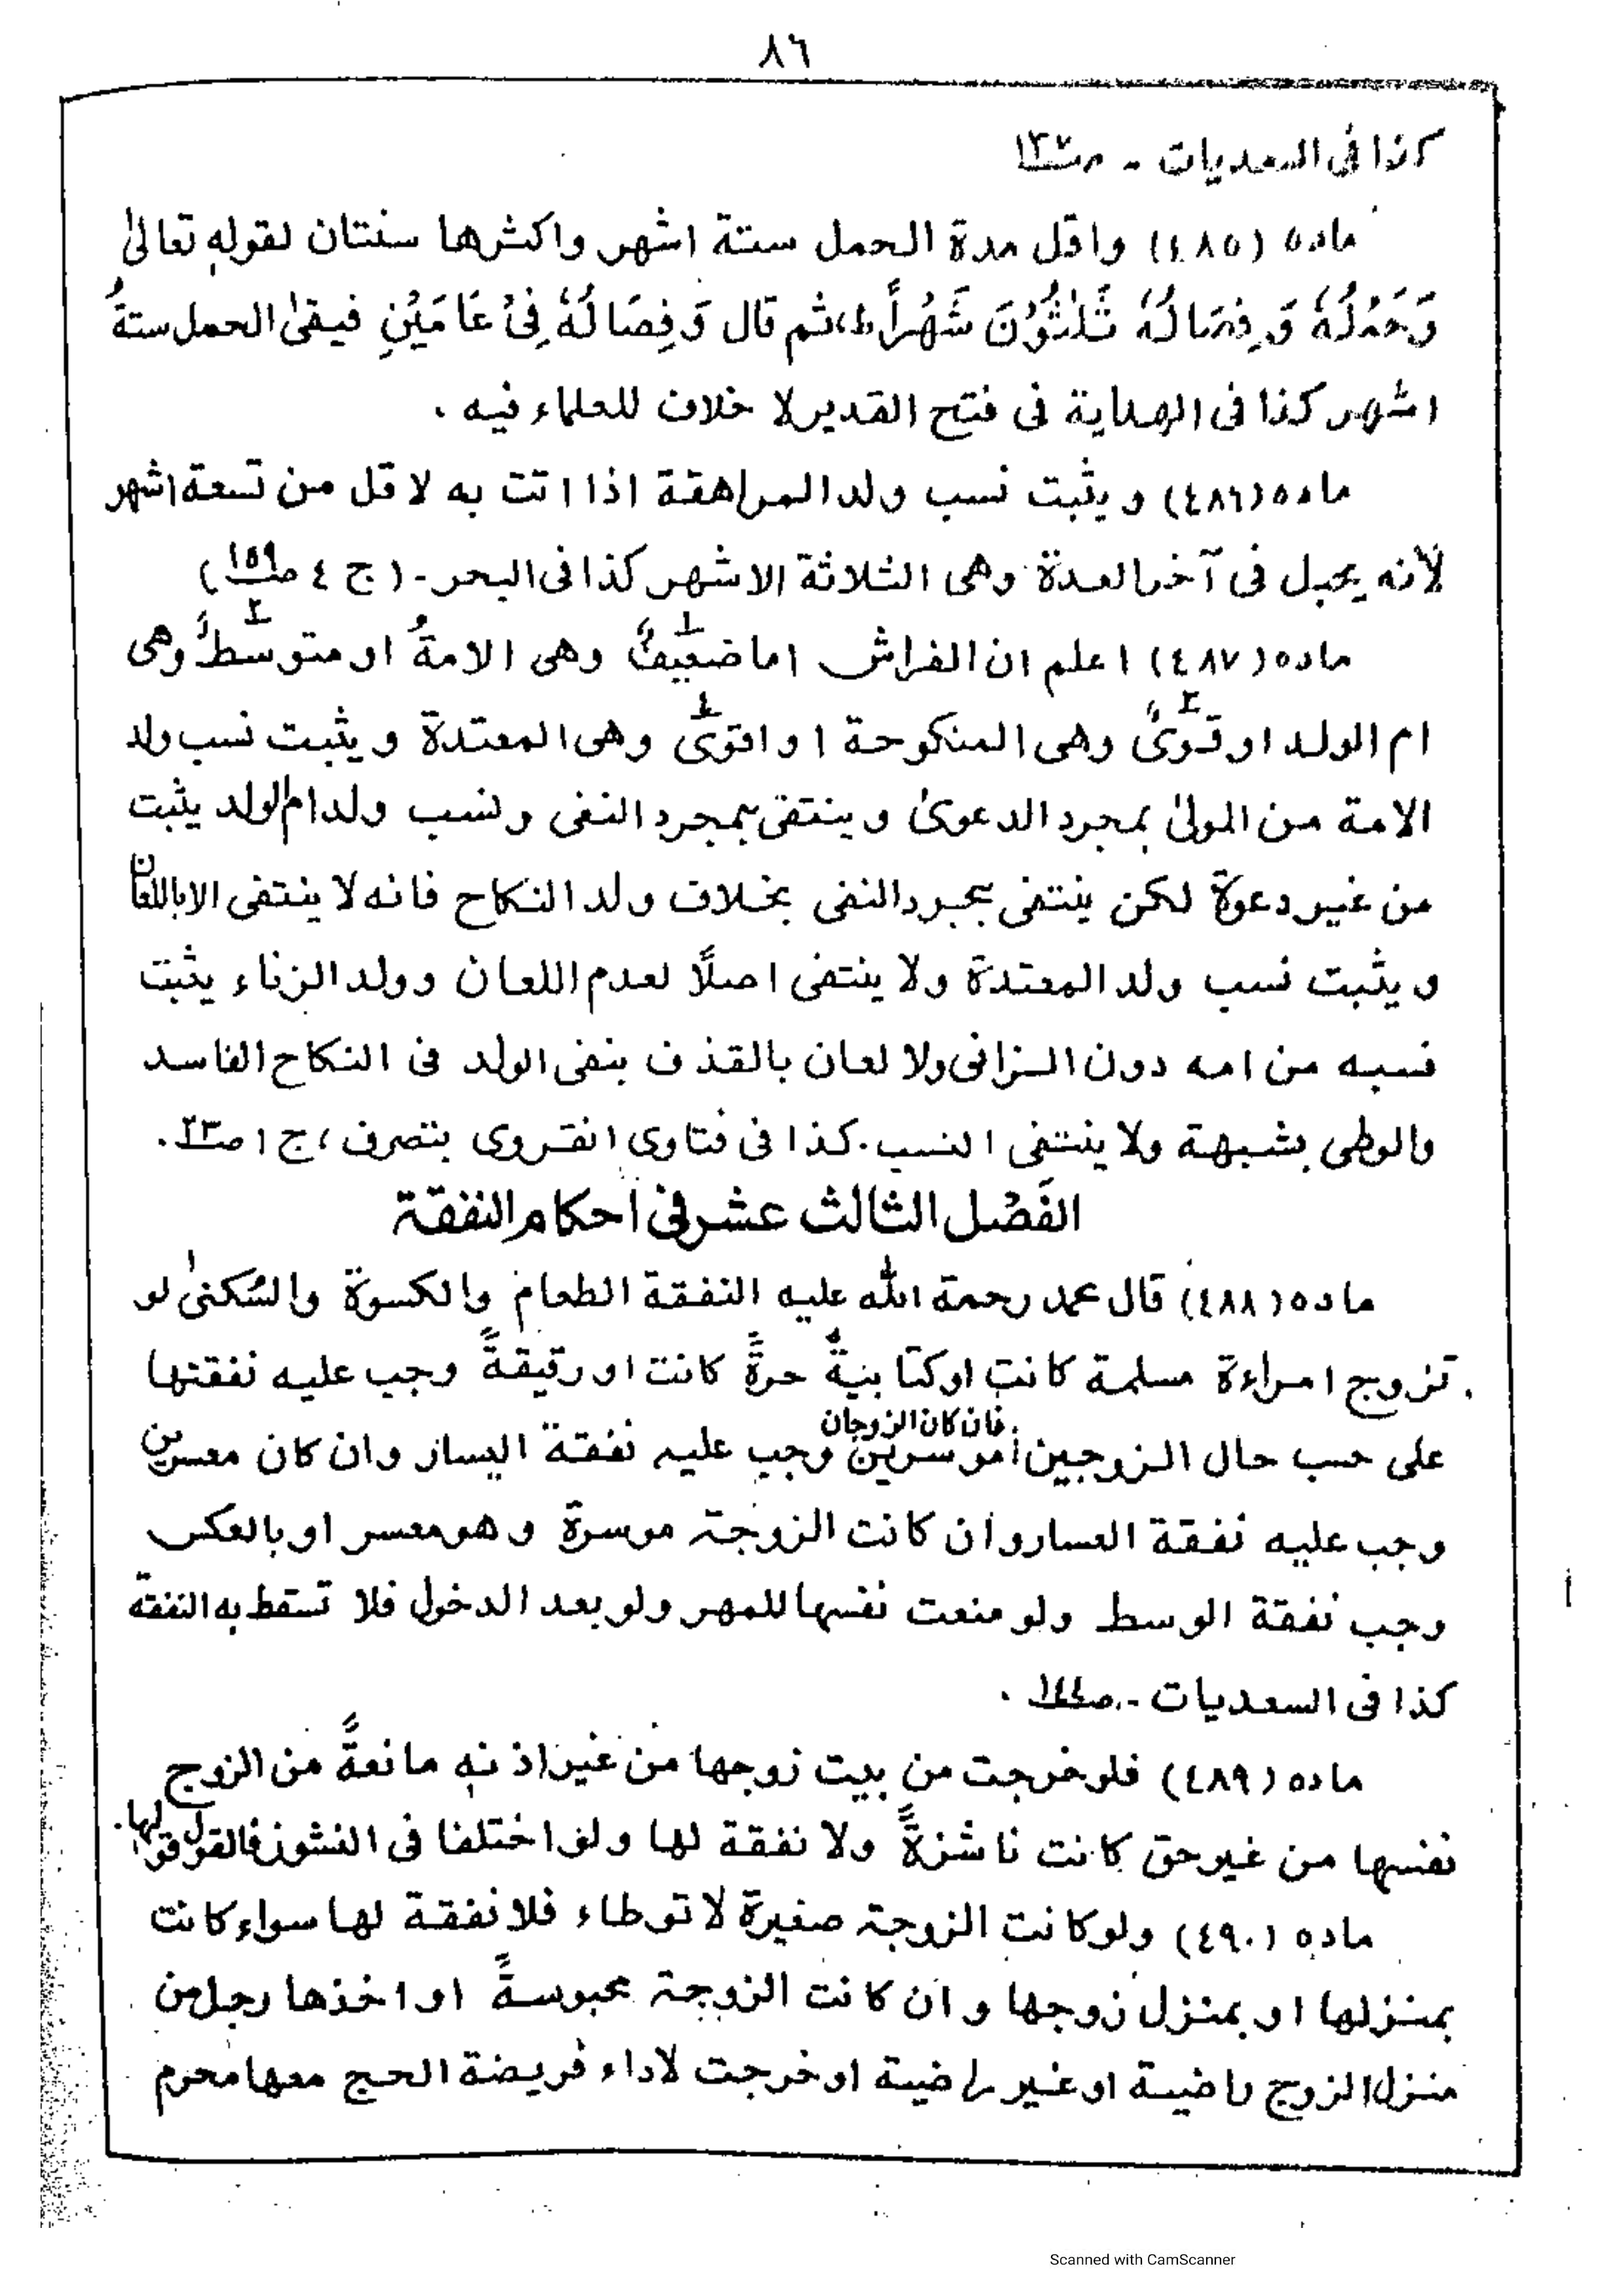 ٨٦
كذا فى السعديات - صـ١٣٧
ماده (٤٨٥) واقل مدة الحمل ستة اشهر واكثرها سنتان لقوله تعالىٰ
وَحَمْلُهٗ وَفِصَالُهٗ ثَلٰثُوْنَ شَهْراً ط، ثم قال وَفِصَالُهٗ فِىْ عَامَيْنِ فيبقىٰ الحمل ستةُ
اشهر كذا فى الهداية فى فتح القدير لا خلاف للعلماء فيه .
ماده (٤٨٦) ويثبت نسب ولد المراهقة اذا اتت به لاقل من تسعة اشهر
لأنه يحبل فى آخر العدة وهى الثلاثة الاشهر كذا فى البحر - (ج ٤ صـ١٥٩)
ماده (٤٨٧) اعلم ان الفراش اما ضعيفٌ ١ وهى الامةُ او متوسطٌ ٢ وهى
ام الولد او قوىٌ ٣ وهى المنكوحة او اقوىٰ ٤ وهى المعتدة ويثبت نسب ولد
الامة من المولىٰ بمجرد الدعوىٰ وينتفى بمجرد النفى ونسب ولد ام الولد يثبت
من غير دعوة لكن ينتفى بمجرد النفى بخلاف ولد النكاح فانه لا ينتفى الا باللعان
ويثبت نسب ولد المعتدة ولا ينتفى اصلًا لعدم اللعان وولد الزناء يثبت
نسبه من امه دون الزانى ولا لعان بالقذف بنفى الولد فى النكاح الفاسد
والوطى بشبهة ولا ينتفى النسب. كذا فى فتاوى انقروى بتصرف، ج ١
الفَصْل الثالث عشر فى احكام النفقة
ماده (٤٨٨) قال محمد رحمة الله عليه النفقة الطعام والكسوة والسُكنىٰ لو
تزوج امراءة مسلمة كانت او كتابيةً حرةً كانت او رقيقةً وجب عليه نفقتها
على حسب حال الزوجين فان كان الزوجان موسرين وجب عليه نفقة اليسار وان كان معسرين
وجب عليه نفقة العسار وان كانت الزوجة موسرة وهو معسر او بالعكس
وجب نفقة الوسط ولو منعت نفسها للمهر ولو بعد الدخول فلا تسقط به النفقة
كذا فى السعديات - صـ١٤٤ .
ماده (٤٨٩) فلو خرجت من بيت زوجها من غير اذنه مانعةً من الزوج
نفسها من غير حق كانت ناشزةً ولا نفقة لها ولو اختلفا فى النشوز فالقول قولها.
ماده (٤٩٠) ولو كانت الزوجة صغيرة لا توطاء فلا نفقة لها سواء كانت
بمنزلها او بمنزل زوجها وان كانت الزوجة محبوسةً او اخذها رجل من
منزل الزوج راضية او غير راضية او خرجت لاداء فريضة الحج معها محرم
Scanned with CamScanner